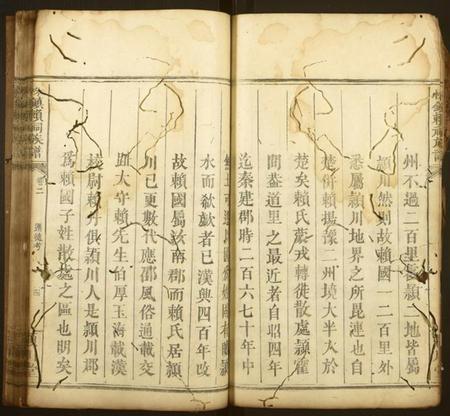 州不過二百里㠯潁一地皆屬
潁川然則故賴國一二百里外
悉屬潁川地界之所毘連也自
楚併賴揚豫二州境大半入於
楚矣賴氏蒙戎轉徙散處潁霍
間葢道里之最近者自昭四年
迄秦建郡時二百六七十年中
水而欷歔者已漢興四百年改
故賴國屬汝南郡而賴氏居潁
川已更數代應劭風俗通載交
趾大守賴先生伯厚玉海載漢
校尉賴丹俱潁川人是潁川郡
爲賴國子姓散處之區也明矣
賴氏族譜
卷二
遷徙考